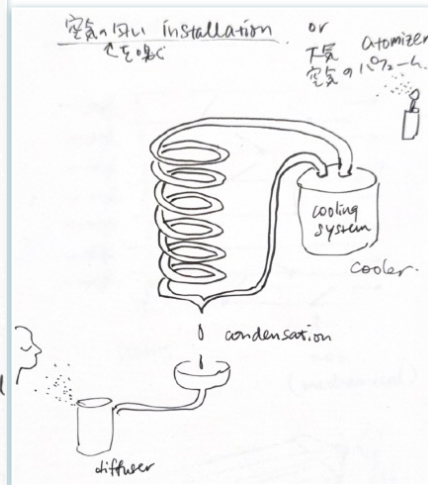 空気の匂い installation or
を嗅ぐ
atomizer
空気のパフューム.
cooling
system
cooler.
condensation
diffuser